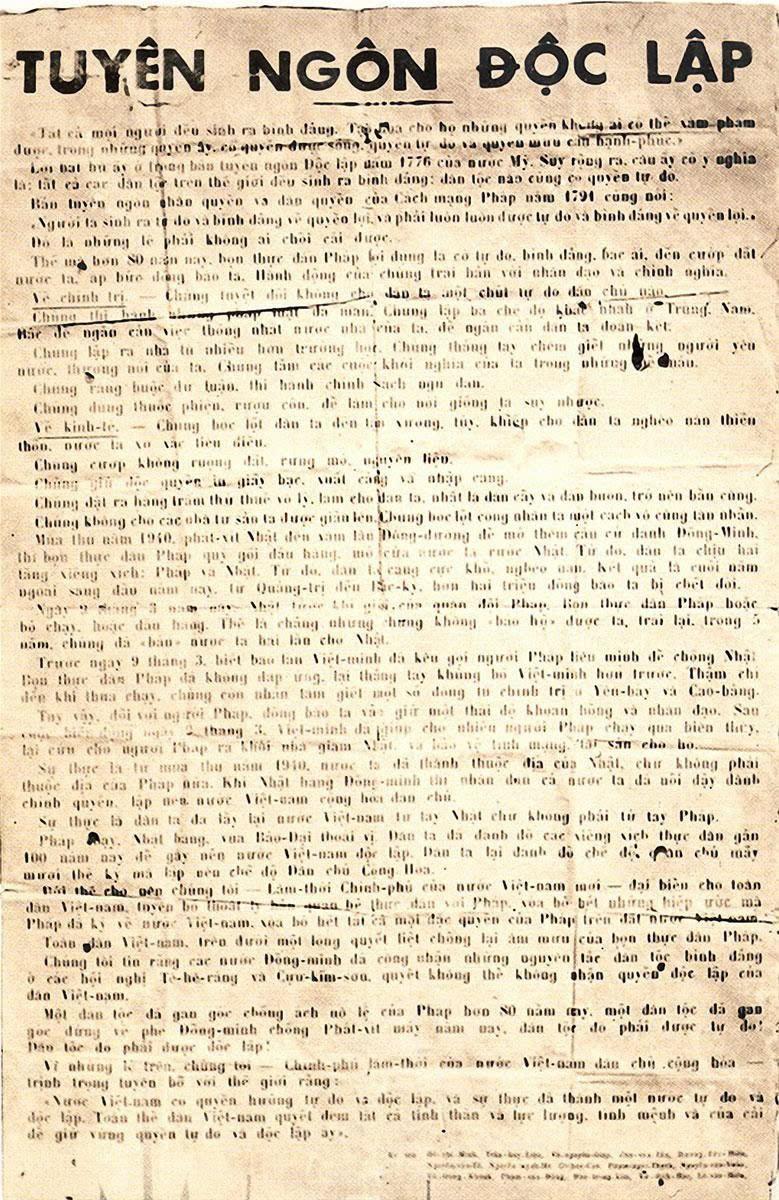 TUYÊN NGÔN ĐỘC LẬP
«Tất cả mọi người đều sinh ra bình đẳng. Tạo hóa cho họ những quyền không ai có thể xâm phạm
được, trong những quyền ấy, có quyền được sống, quyền tự do và quyền mưu cầu hạnh-phúc.»
Lời bất hủ ấy ở trong bản tuyên ngôn Độc lập năm 1776 của nước Mỹ. Suy rộng ra, câu ấy có ý nghĩa
là: tất cả các dân tộc trên thế giới đều sinh ra bình đẳng; dân tộc nào cũng có quyền tự do.
Bản tuyên ngôn nhân quyền và dân quyền của Cách mạng Pháp năm 1791 cũng nói:
«Người ta sinh ra tự do và bình đẳng về quyền lợi, và phải luôn luôn được tự do và bình đẳng về quyền lợi.»
Đó là những lẽ phải không ai chối cãi được.
Thế mà hơn 80 năm nay, bọn thực dân Pháp lợi dụng lá cờ tự do, bình đẳng, bác ái, đến cướp đất
nước ta, áp bức đồng bào ta. Hành động của chúng trái hẳn với nhân đạo và chính nghĩa.
Về chính trị. — Chúng tuyệt đối không cho dân ta một chút tự do dân chủ nào.
Chúng thi hành những pháp luật dã man. Chúng lập ba chế độ khác nhau ở Trung, Nam,
Bắc để ngăn cản việc thống nhất nước nhà của ta, để ngăn cản dân ta đoàn kết.
Chúng lập ra nhà tù nhiều hơn trường học. Chúng thẳng tay chém giết những người yêu
nước, thương nòi của ta. Chúng tắm các cuộc khởi nghĩa của ta trong những bể máu.
Chúng ràng buộc dư luận, thi hành chính sách ngu dân.
Chúng dùng thuốc phiện, rượu cồn, để làm cho nòi giống ta suy nhược.
Về kinh-tế. — Chúng bóc lột dân ta đến tận xương, tủy, khiến cho dân ta nghèo nàn thiếu
thốn, nước ta xơ xác tiêu điều.
Chúng cướp không ruộng đất, rừng mỏ, nguyên liệu.
Chúng giữ độc quyền in giấy bạc, xuất cảng và nhập cảng.
Chúng đặt ra hàng trăm thứ thuế vô lý, làm cho dân ta, nhất là dân cầy và dân buôn, trở nên bần cùng.
Chúng không cho các nhà tư sản ta được giàu lên. Chúng bóc lột công nhân ta một cách vô cùng tàn nhẫn.
Mùa thu năm 1940, phát-xít Nhật đến xâm lăn Đông-dương để mở thêm căn cứ đánh Đồng-Minh,
thì bọn thực dân Pháp quỳ gối đầu hàng, mở cửa nước ta rước Nhật. Từ đó, dân ta chịu hai
tầng xiềng xích: Pháp và Nhật. Từ đó, dân ta càng cực khổ, nghèo nàn. Kết quả là cuối năm
ngoái sang đầu năm nay, từ Quảng-trị đến Bắc-kỳ, hơn hai triệu đồng bào ta bị chết đói.
Ngày 9 tháng 3 năm nay, Nhật tước khí giới của quân đội Pháp. Bọn thực dân Pháp hoặc
bỏ chạy, hoặc đầu hàng. Thế là chẳng những chúng không «bảo hộ» được ta, trái lại, trong 5
năm, chúng đã «bán» nước ta hai lần cho Nhật.
Trước ngày 9 tháng 3, biết bao lần Việt-minh đã kêu gọi người Pháp liên minh để chống Nhật.
Bọn thực dân Pháp đã không đáp ứng, lại thẳng tay khủng bố Việt-minh hơn trước. Thậm chí
đến khi thua chạy, chúng còn nhẫn tâm giết một số đông tù chính trị ở Yên-bay và Cao-bằng.
Tuy vậy, đối với người Pháp, đồng bào ta vẫn giữ một thái độ khoan hồng và nhân đạo. Sau
cuộc biến động ngày 9 tháng 3, Việt-minh đã giúp cho nhiều người Pháp chạy qua biên thùy,
lại cứu cho người Pháp ra khỏi nhà giam Nhật, và bảo vệ tính mạng, tài sản cho họ.
Sự thực là từ mùa thu năm 1940, nước ta đã thành thuộc địa của Nhật, chứ không phải
thuộc địa của Pháp nữa. Khi Nhật hàng Đồng-minh thì nhân dân cả nước ta đã nổi dậy dành
chính quyền, lập nên nước Việt-nam cộng hòa dân chủ.
Sự thực là dân ta đã lấy lại nước Việt-nam từ tay Nhật chứ không phải từ tay Pháp.
Pháp chạy, Nhật hàng, vua Bảo-Đại thoái vị. Dân ta đã đánh đổ các xiềng xích thực dân gần
100 năm nay để gây nên nước Việt-nam độc lập. Dân ta lại đánh đổ chế độ quân chủ mấy
mươi thế kỷ mà lập nên chế độ Dân chủ Cộng Hòa.
Bởi thế cho nên chúng tôi — Lâm-thời Chính-phủ của nước Việt-nam mới — đại biểu cho toàn
dân Việt-nam, tuyên bố thoát ly hẳn quan hệ thực dân với Pháp, xóa bỏ hết những hiệp ước mà
Pháp đã ký về nước Việt-nam, xóa bỏ hết tất cả mọi đặc quyền của Pháp trên đất nước Việt-nam.
Toàn dân Việt-nam, trên dưới một lòng quyết liệt chống lại âm mưu của bọn thực dân Pháp.
Chúng tôi tin rằng các nước Đồng-minh đã công nhận những nguyên tắc dân tộc bình đẳng
ở các hội nghị Tê-hê-răng và Cựu-kim-sơn, quyết không thể không nhận quyền độc lập của
dân Việt-nam.
Một dân tộc đã gan góc chống ách nô lệ của Pháp hơn 80 năm nay, một dân tộc đã gan
góc đứng về phe Đồng-minh chống Phát-xít mấy năm nay, dân tộc đó phải được tự do!
Dân tộc đó phải được độc lập!
Vì những lẽ trên, chúng tôi — Chính-phủ lâm-thời của nước Việt-nam dân chủ cộng hòa —
trịnh trọng tuyên bố với thế giới rằng:
«Nước Việt-nam có quyền hưởng tự do và độc lập, và sự thực đã thành một nước tự do và
độc lập. Toàn thể dân Việt-nam quyết đem tất cả tinh thần và lực lượng, tính mệnh và của cải
để giữ vững quyền tự do và độc lập ấy».